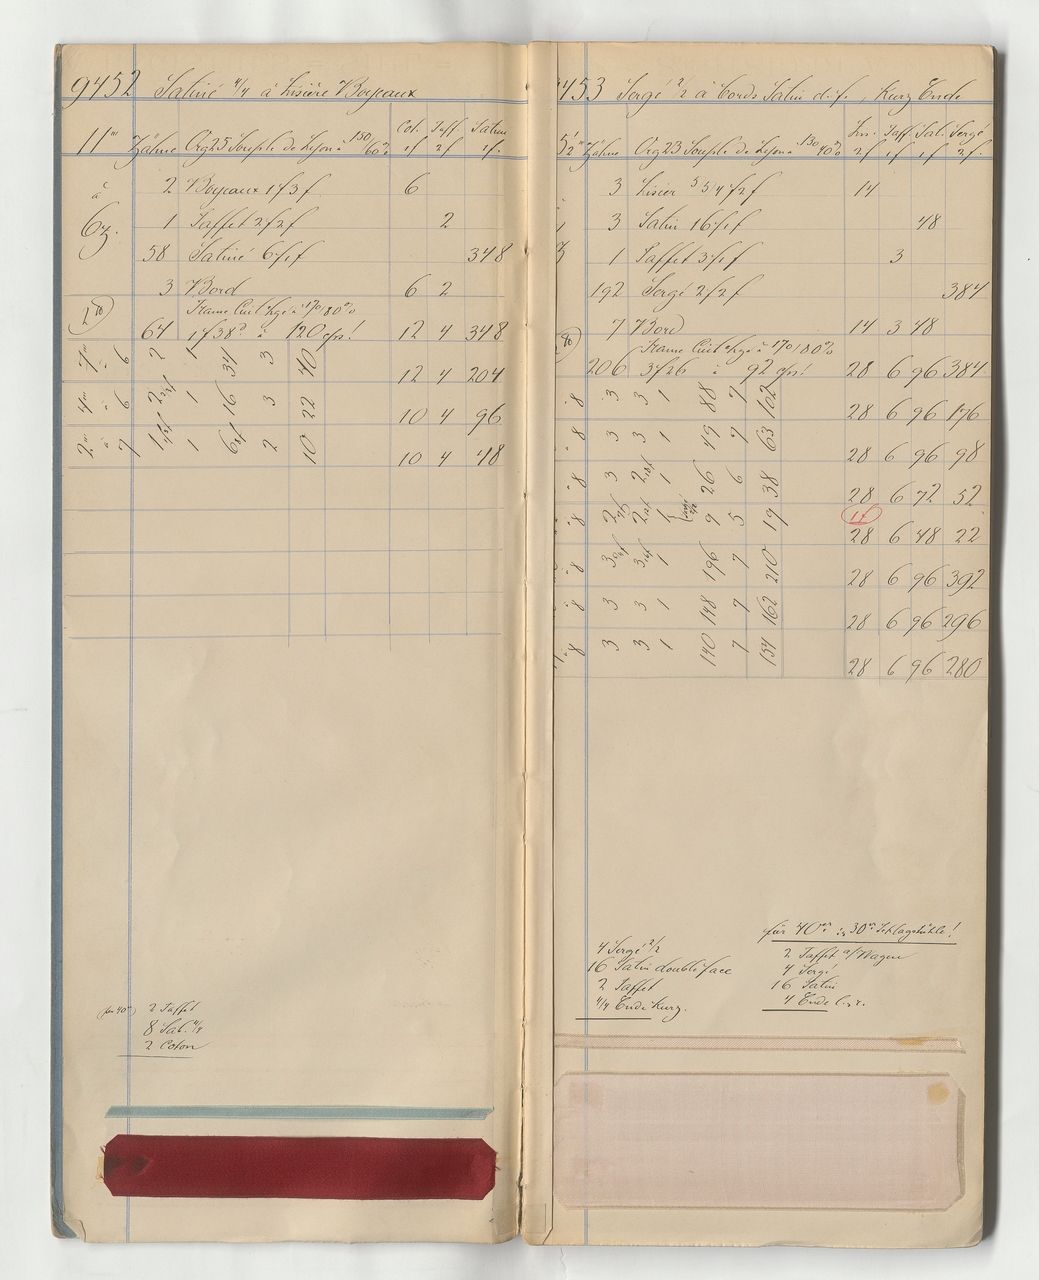 9452 Satiné 4/4 à Lisière Boyeaux
Cot. Taff. Satin
11''' Zähne Org 25 Souple de Lyon à 150/60% 1f 2f 1f.
à 2 Boyeaux 1f3f 6
6z. 1 Taffet 2f2f 2
58 Satiné 6f1f 348
3 Bord 6 2
Trame Cuit à 170/80%
64 1f38 à 120 cps! 12 4 348
7''' à 6 2 1 34 3 40 12 4 204
4''' à 6 2 1 16 3 22 10 4 96
2''' à 7 1 1 6 2 10 10 4 48
(für 40''') 2 Taffet
8 Sat. 4/4
2 Coton
9453 Sergé 2/2 à bords Satin d.f., Kurz Ende
Lis. Taff Sat. Sergé
5½''' Zähne Org 23 Souple de Lyon à 130/40% 2f 1f 1f 2f.
3 Lisier 5 5 4f2f 14
3 Satin 16f1f 48
1 Taffet 3f1f 3
192 Sergé 2f2f 384
7 Bord 14 3 48
Trame Cuit à 170/80%
206 3f26 à 92 cps! 28 6 96 384
8 3 3 1 88 7 102 28 6 96 176
8 3 3 1 49 7 63 28 6 96 98
8 3 2 1 26 6 38 28 6 72 52
1f
8 2 2 1 9 5 19 28 6 48 22
8 3 3 1 196 7 210 28 6 96 392
8 3 3 1 148 7 162 28 6 96 296
8 3 3 1 140 7 154 28 6 96 280
4 Sergé 2/2
16 Satin double face
2 Taffet
4/4 Ende Kurz.
für 40''' & 30''' Schlagstühle!
2 Taffet a/Wagen
4 Sergé
16 Satin
4 Ende l. & r.